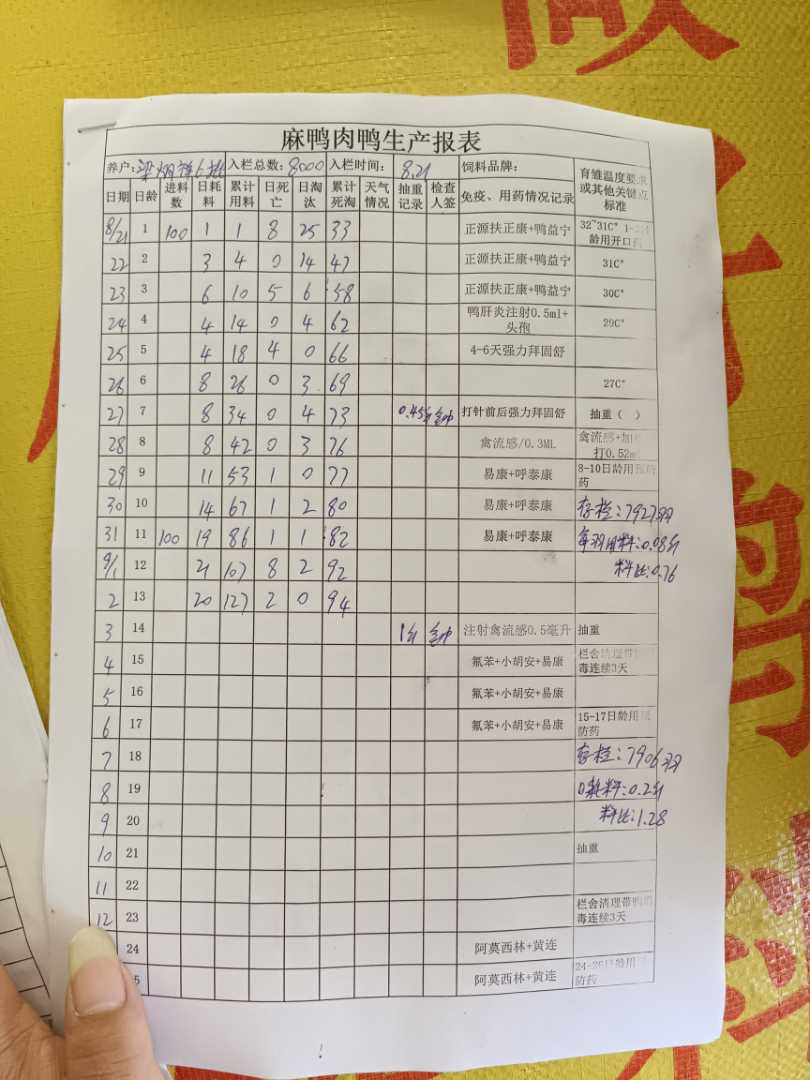 麻鸭肉鸭生产报表
养户: 6批 入栏总数: 8000 入栏时间: 8.21 饲料品牌: 育雏温度要求或其他关键点标准
日期 日龄 进料数 日耗料 累计用料 日死亡 日淘汰 累计死淘 天气情况 抽重记录 检查人签 免疫、用药情况记录
8/21 1 100 1 1 8 25 33 正源扶正康+鸭益宁 32~31C° 龄用开口药
22 2 3 4 0 14 47 正源扶正康+鸭益宁 31C°
23 3 6 10 5 6 58 正源扶正康+鸭益宁 30C°
24 4 4 14 0 4 62 鸭肝炎注射0.5ml+头孢 29C°
25 5 4 18 4 0 66 4-6天强力拜固舒
26 6 8 26 0 3 69 27C°
27 7 8 34 0 4 73 0.45斤 打针前后强力拜固舒 抽重（ ）
28 8 8 42 0 3 76 禽流感/0.3ML 禽流感+ 打0.52m
29 9 11 53 1 0 77 易康+呼泰康 8-10日龄用预防药
30 10 14 67 1 2 80 易康+呼泰康 存栏:7927羽
31 11 100 19 86 1 1 82 易康+呼泰康 每羽用料:0.08斤
9/1 12 21 107 8 2 92 料比:0.76
2 13 20 127 2 0 94
3 14 1斤 注射禽流感0.5毫升 抽重
4 15 氟苯+小胡安+易康 栏舍清理带 毒连续3天
5 16 氟苯+小胡安+易康
6 17 氟苯+小胡安+易康 15-17日龄用预防药
7 18 存栏:7906羽
8 19 日耗料:0.2斤
9 20 料比:1.28
10 21 抽重
11 22
12 23 栏舍清理带鸭消毒连续3天
24 阿莫西林+黄连
5 阿莫西林+黄连 24-26日龄用预防药